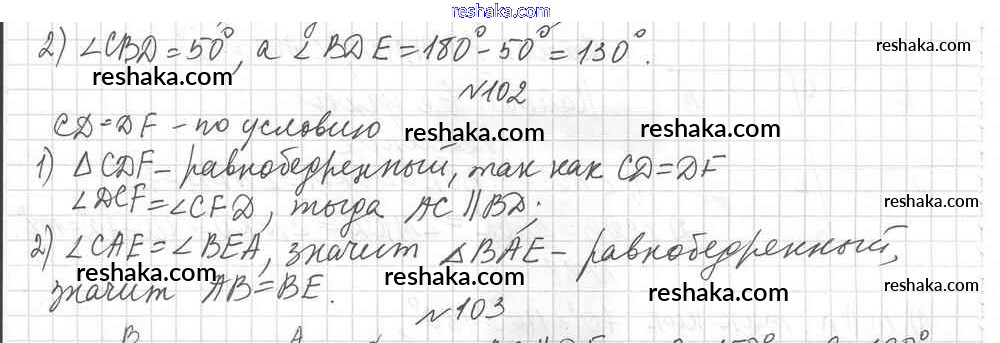 reshaka.com
2) ∠CBD=50°, а ∠BDE=180°-50°=130°.
reshaka.com
reshaka.com
reshaka.com
№102
CD=DF – по условию
reshaka.com
reshaka.com
1) △CDF – равнобедренный, так как CD=DF
∠DCF=∠CFD, тогда AC ∥ BD;
reshaka.com
2) ∠CAE=∠BEA, значит △BAE – равнобедренный,
reshaka.com
reshaka.com
reshaka.com
reshaka.com
значит AB=BE.
№103